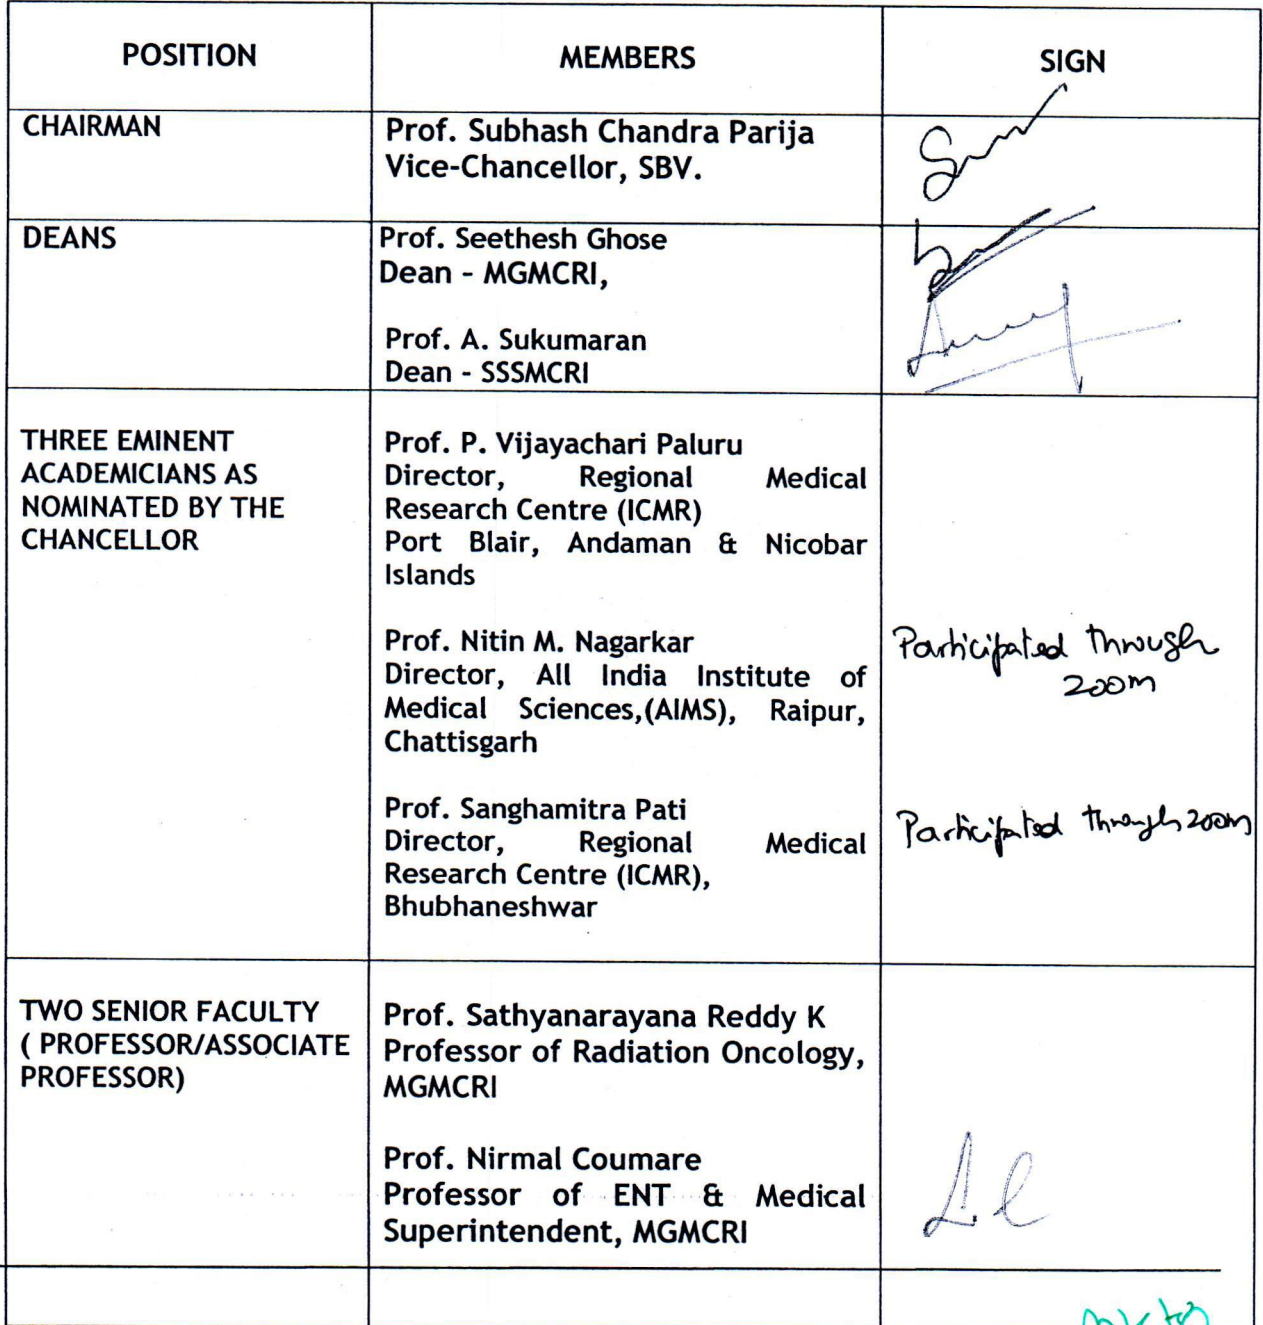 POSITION MEMBERS SIGN
CHAIRMAN
Prof. Subhash Chandra Parija
Vice-Chancellor, SBV.
DEANS
Prof. Seethesh Ghose
Dean - MGMCRI,
Prof. A. Sukumaran
Dean - SSSMCRI
THREE EMINENT
ACADEMICIANS AS
NOMINATED BY THE
CHANCELLOR
Prof. P. Vijayachari Paluru
Director, Regional Medical
Research Centre (ICMR)
Port Blair, Andaman & Nicobar
Islands
Prof. Nitin M. Nagarkar
Director, All India Institute of
Medical Sciences,(AIMS), Raipur,
Chattisgarh
Participated through
zoom
Prof. Sanghamitra Pati
Director, Regional Medical
Research Centre (ICMR),
Bhubhaneshwar
Participated through zoom
TWO SENIOR FACULTY
( PROFESSOR/ASSOCIATE
PROFESSOR)
Prof. Sathyanarayana Reddy K
Professor of Radiation Oncology,
MGMCRI
Prof. Nirmal Coumare
Professor of ENT & Medical
Superintendent, MGMCRI